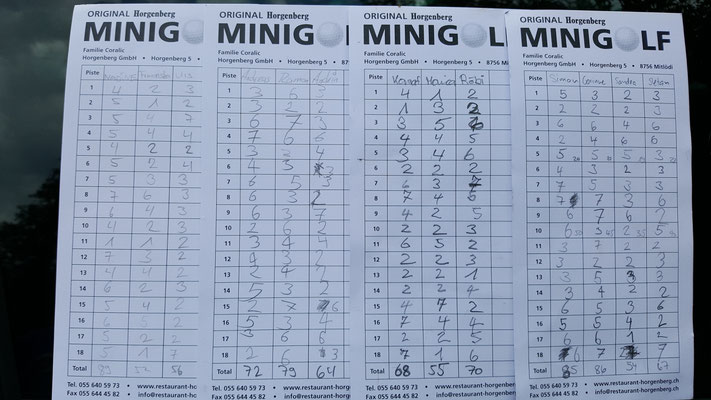 ORIGINAL Horgenberg
MINIGOLF
Familie Coralic
Horgenberg GmbH • Horgenberg 5 •
Piste
1 4 2 3
2 5 1 2
3 5 4 7
4 5 4 4
5 4 2 2
6 5 2 4
7 5 3 3
8 7 6 3
9 6 4 3
10 4 2 3
11 1 1 2
12 7 3 2
13 4 4 2
14 6 2 3
15 5 4 2
16 6 5 2
17 5 2 2
18 5 1 7
Total 89 56
Tel. 055 640 59 73 • www.restaurant-horg
Fax 055 644 45 82 • info@restaurant-horg
ORIGINAL Horgenberg
MINIGOLF
Familie Coralic
Horgenberg GmbH • Horgenberg 5 • 8756
Piste
1 3 6 3
2 3 2 2
3 6 7 3
4 7 6 6
5 3 2 4
6 4 3 3
7 6 5 3
8 6 3 2
9 6 3 7
10 2 6 2
11 3 4 4
12 4 3 2
13 2 4 2
14 5 3 2
15 2 7 6
16 5 3 4
17 3 6 6
18 2 6 3
Total 72 79 64
Tel. 055 640 59 73 • www.restaurant-horgen
Fax 055 644 45 82 • info@restaurant-horgen
ORIGINAL Horgenberg
MINIGOLF
Familie Coralic
Horgenberg GmbH • Horgenberg 5 • 8756 M
Piste Röbi
1 4 1 2
2 1 3 2
3 3 5 6
4 4 4 5
5 3 4 6
6 2 2 2
7 6 3 7
8 7 4 6
9 4 2 5
10 2 2 3
11 6 5 2
12 2 2 3
13 2 2 1
14 2 2 4
15 4 7 2
16 7 4 4
17 2 2 5
18 7 1 6
Total 68 55 70
Tel. 055 640 59 73 • www.restaurant-horgenberg
Fax 055 644 45 82 • info@restaurant-horgenberg
ORIGINAL Horgenberg
MINIGOLF
Familie Coralic
Horgenberg GmbH • Horgenberg 5 • 8756 Mitlödi
Piste Simon Corinne Sandra Stefan
1 5 3 2 3
2 2 2 2 3
3 6 6 4 6
4 2 4 6 6
5 5 5 5 3
6 4 3 2 3
7 7 5 3 3
8 7 7 3 6
9 6 7 6 2
10 6 3 2 5
11 3 7 2 2
12 3 2 2 3
13 3 5 3 3
14 3 4 2 2
15 6 5 3 6
16 5 5 4 2
17 6 6 1 2
18 6 7 7
Total 85 86 67
Tel. 055 640 59 73 • www.restaurant-horgenberg.ch
Fax 055 644 45 82 • info@restaurant-horgenberg.ch